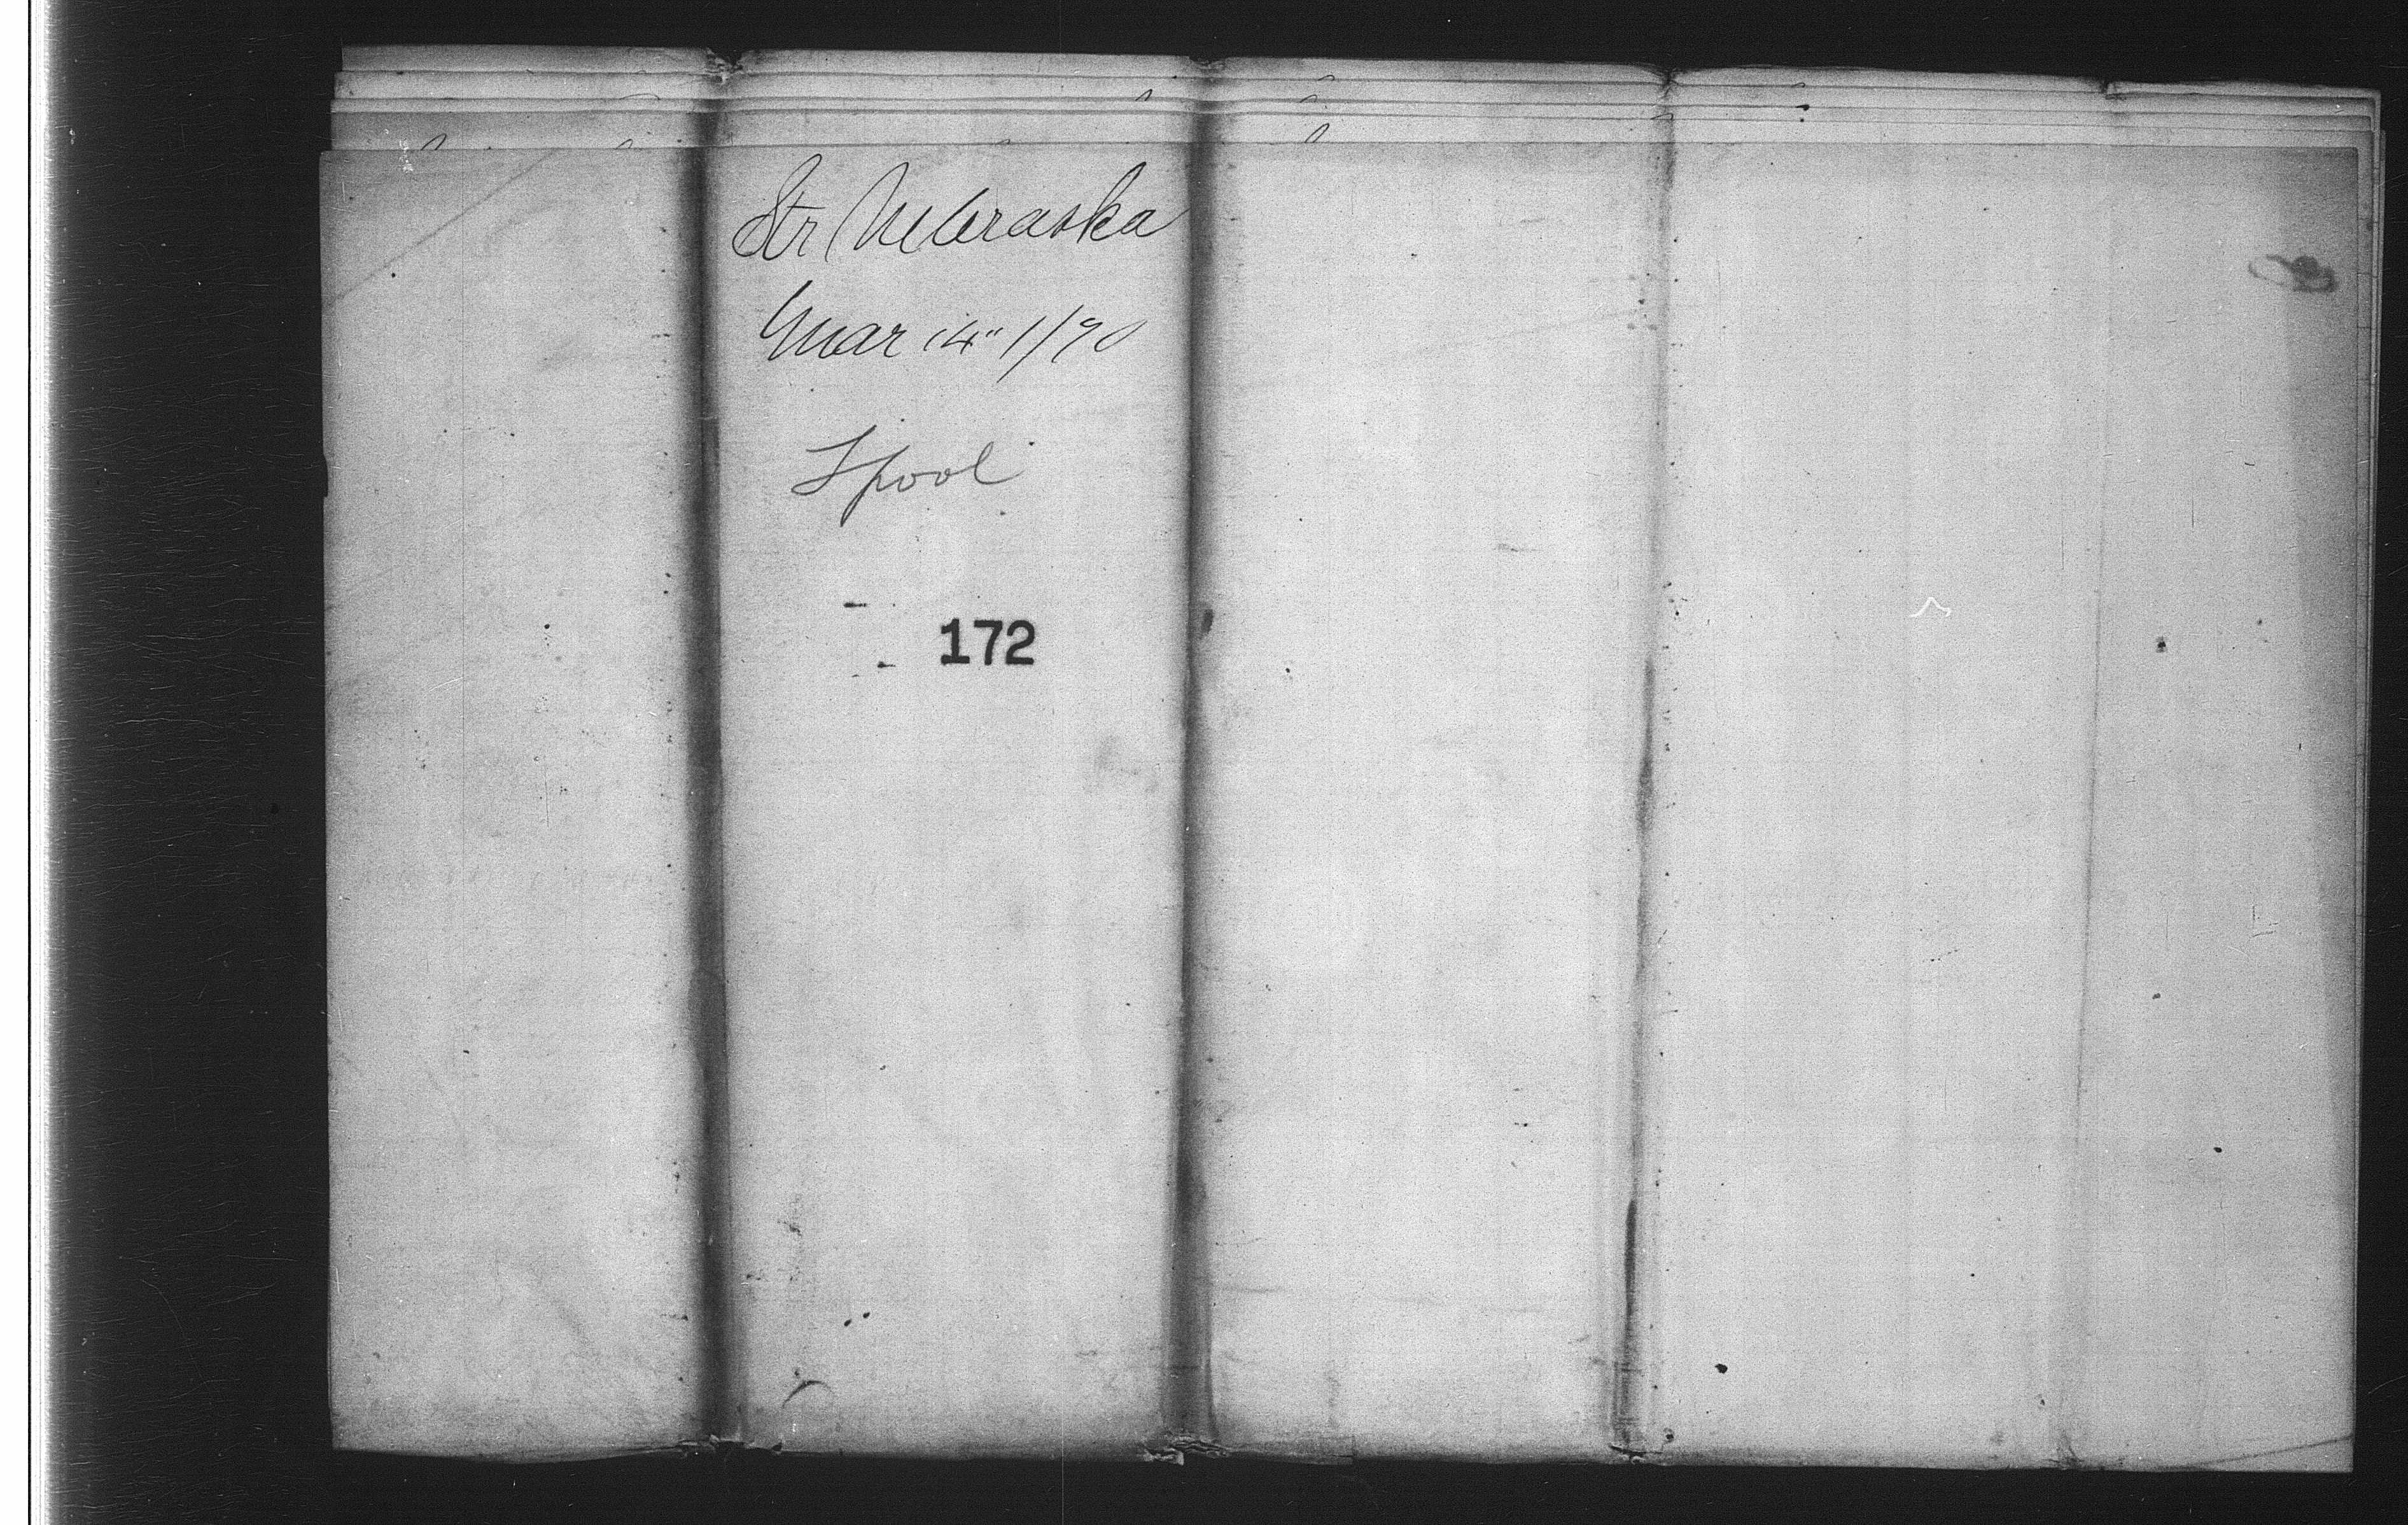 Str Nebraska
Mar 14" 1/90
Lpool
172